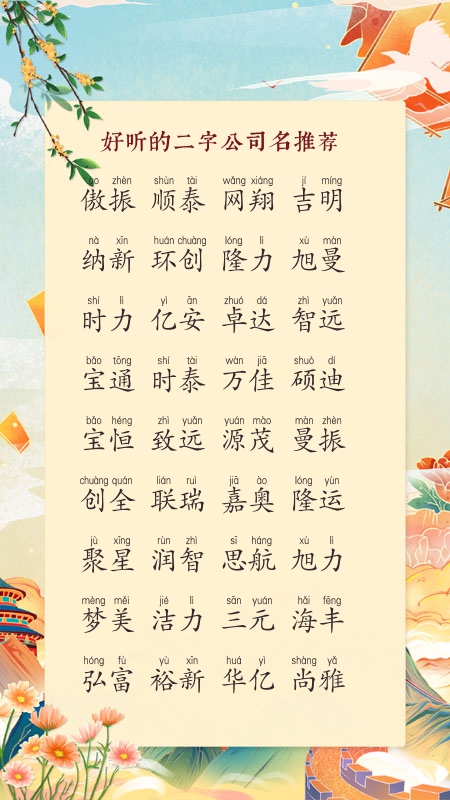 好听的二字公司名推荐
ào zhèn shùn tài wǎng xiáng jí míng
傲振 顺泰 网翔 吉明
nà xīn huán chuàng lóng lì xù màn
纳新 环创 隆力 旭曼
shí lì yì ān zhuó dá zhì yuǎn
时力 亿安 卓达 智远
bǎo tōng shí tài wàn jiā shuò dí
宝通 时泰 万佳 硕迪
bǎo héng zhì yuǎn yuán mào màn zhèn
宝恒 致远 源茂 曼振
chuàng quán lián ruì jiā ào lóng yùn
创全 联瑞 嘉奥 隆运
jù xīng rùn zhì sī háng xù lì
聚星 润智 思航 旭力
mèng měi jié lì sān yuán hǎi fēng
梦美 洁力 三元 海丰
hóng fù yù xīn huá yì shàng yǎ
弘富 裕新 华亿 尚雅